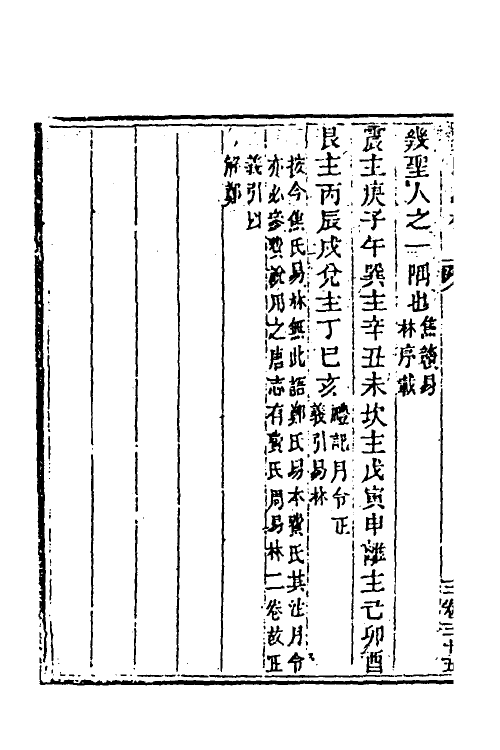 幾聖人之一隅也焦贛易
林序載
震主庚子午巽主辛丑未坎主戊寅申離主己卯酉
艮主丙辰戌兌主丁巳亥禮記月令正
義引易林
按今焦氏易林無此語鄭氏易本費氏其注月令
亦必參費說用之唐志有費氏周易林二卷故正
義引以
解鄭